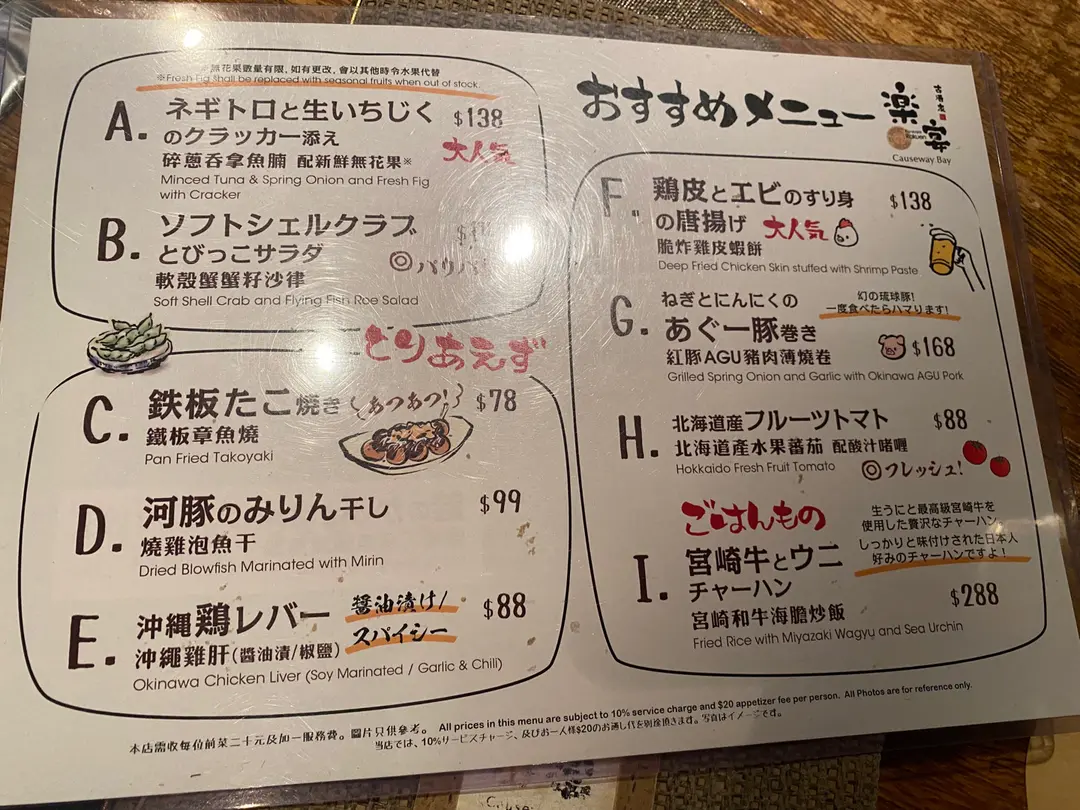 ※無花果數量有限，如有更改，會以其他時令水果代替
※Fresh Fig shall be replaced with seasonal fruits when out of stock.
A. ネギトロと生いちじく $138
のクラッカー添え
大人気
碎蔥吞拿魚腩 配新鮮無花果※
Minced Tuna & Spring Onion and Fresh Fig
with Cracker
B. ソフトシェルクラブ
とびっこサラダ
◎パリパリ
軟殼蟹蟹籽沙律
Soft Shell Crab and Flying Fish Roe Salad
とりあえず
C. 鉄板たこ焼き あつあつ! $78
鐵板章魚燒
Pan Fried Takoyaki
D. 河豚のみりん干し $99
燒雞泡魚干
Dried Blowfish Marinated with Mirin
E. 沖縄鶏レバー 醤油漬け/ $88
スパイシー
沖繩雞肝(醬油漬/椒鹽)
Okinawa Chicken Liver (Soy Marinated / Garlic & Chili)
おすすめメニュー 楽宴
古酒家
Causeway Bay
F. 鶏皮とエビのすり身 $138
の唐揚げ 大人気
脆炸雞皮蝦餅
Deep Fried Chicken Skin stuffed with Shrimp Paste
G. ねぎとにんにくの
幻の琉球豚!
一度食べたらハマります!
あぐー豚巻き
紅豚AGU豬肉薄燒卷 $168
Grilled Spring Onion and Garlic with Okinawa AGU Pork
H. 北海道産フルーツトマト $88
北海道產水果蕃茄 配酸汁啫喱
Hokkaido Fresh Fruit Tomato ◎フレッシュ!
ごはんもの
生うにと最高級宮崎牛を
使用した贅沢なチャーハン。
しっかりと味付けされた日本人
好みのチャーハンですよ!
I. 宮崎牛とウニ
チャーハン $288
宮崎和牛海膽炒飯
Fried Rice with Miyazaki Wagyu and Sea Urchin
本店需收每位前菜二十元及加一服務費。圖片只供參考。 All prices in this menu are subject to 10% service charge and $20 appetizer fee per person. All Photos are for reference only.
当店では、10%サービスチャージ、及びお一人様$20のお通し代を別途頂きます。写真はイメージです。